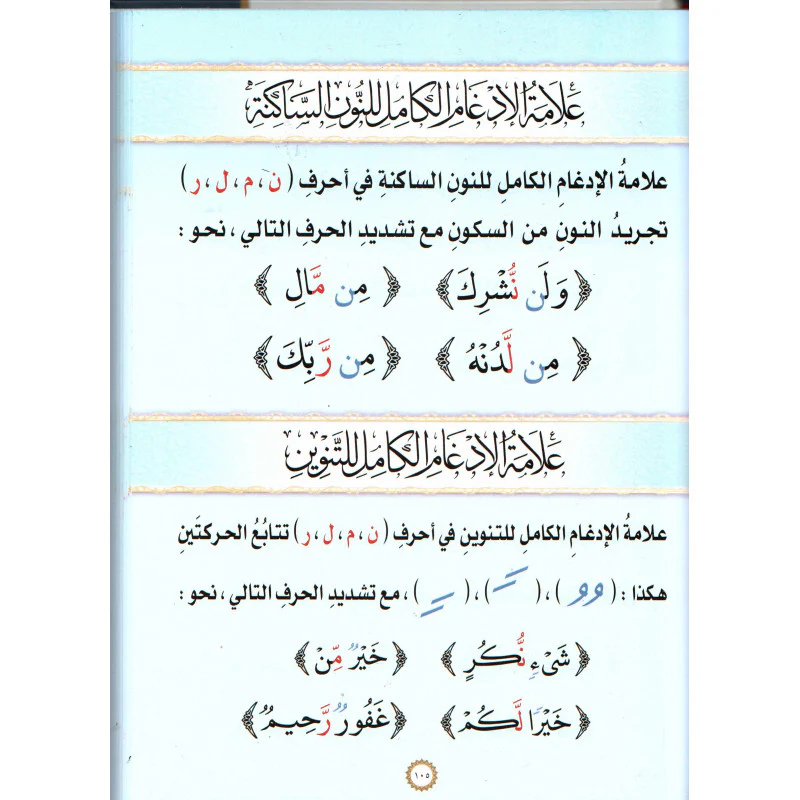 عَلَامَةُ الإِدْغَامِ الكَامِلِ لِلنُّونِ السَّاكِنَةِ
علامةُ الإدغامِ الكاملِ للنونِ الساكنةِ في أحرفِ (ن، م، ل، ر)
تجريدُ النونِ من السكونِ مع تشديدِ الحرفِ التالي، نحو :
﴿ وَلَن نُّشْرِكَ ﴾ ﴿ مِن مَّالِ ﴾
﴿ مِن لَّدُنْهُ ﴾ ﴿ مِن رَّبِّكَ ﴾
عَلَامَةُ الإِدْغَامِ الكَامِلِ لِلتَّنْوِينِ
علامةُ الإدغامِ الكاملِ للتنوينِ في أحرفِ (ن، م، ل، ر) تتابُعُ الحركتَينِ
هكذا : ( ُ ُ )، ( ً )، ( ٍ )، مع تشديدِ الحرفِ التالي، نحو :
﴿ شَىْءٍ نُّكُرٍ ﴾ ﴿ خَيْرٌ مِّنْ ﴾
﴿ خَيْرًا لَّكُمْ ﴾ ﴿ غَفُورٌ رَّحِيمٌ ﴾
١٠٥